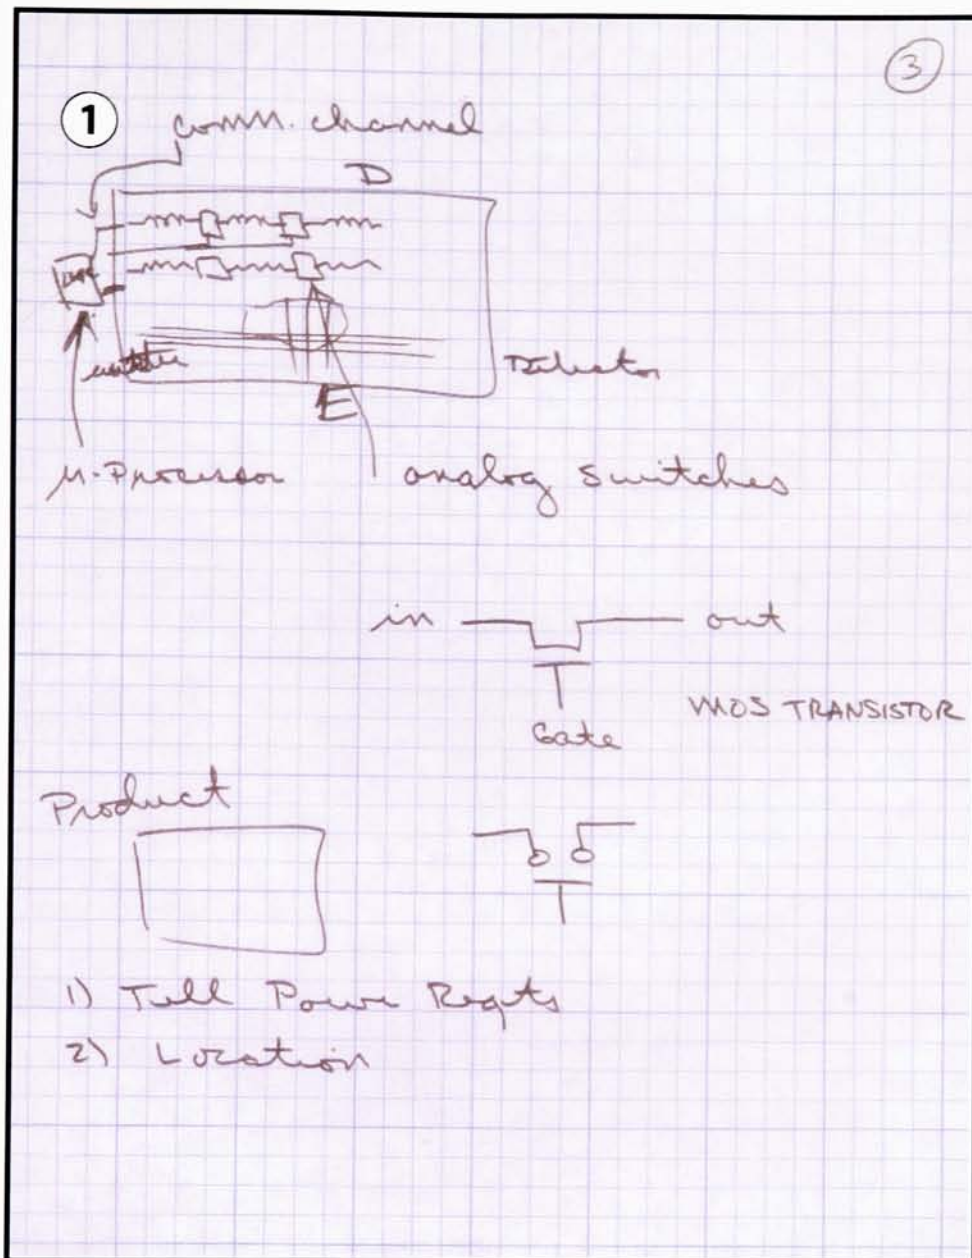 3
1
comm. channel
D
E
Detector
μ-Processor
analog switches
in
out
Gate
MOS TRANSISTOR
Product
1) Tell Power Reqts
2) Location